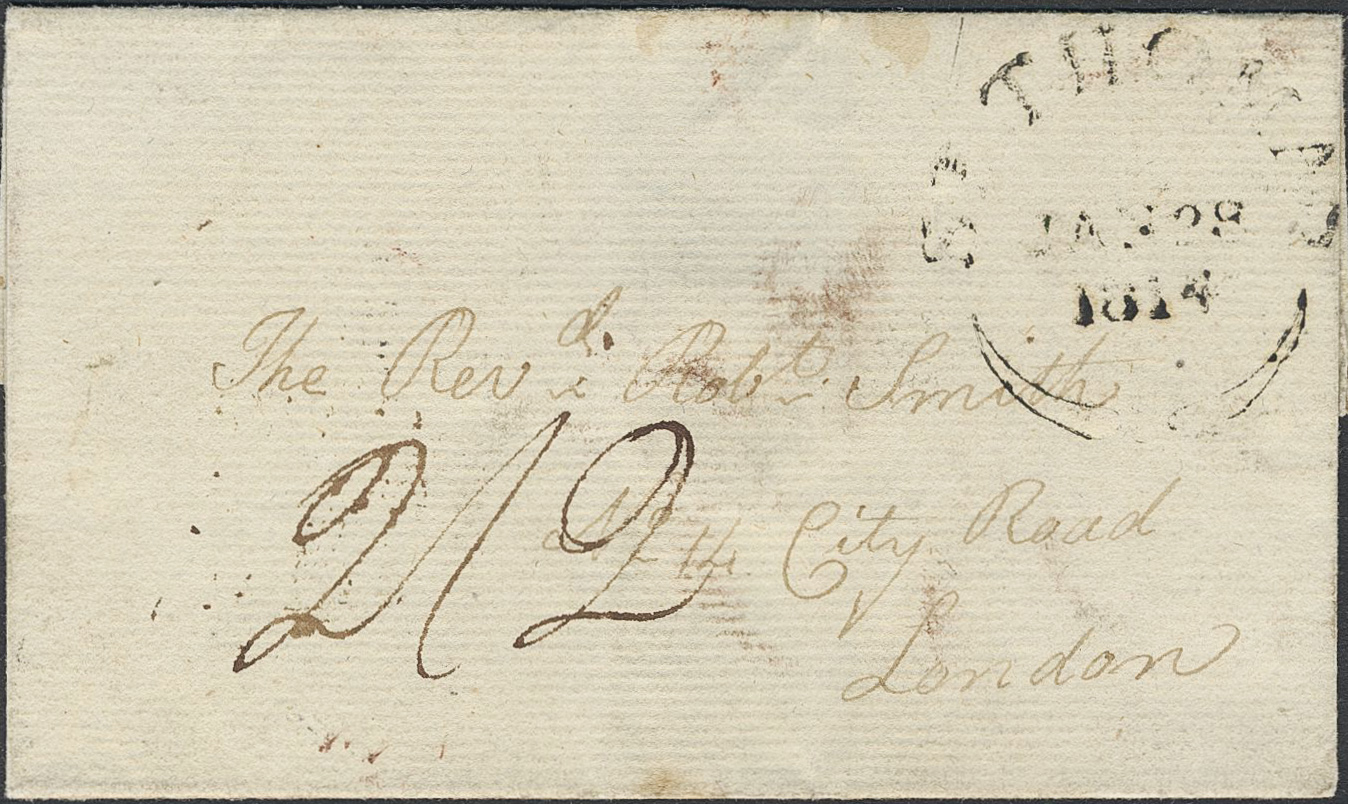 ST THOMAS
JAN 28
1814
The Revd. Robt. Smith
2/2
No 14 City Road
London